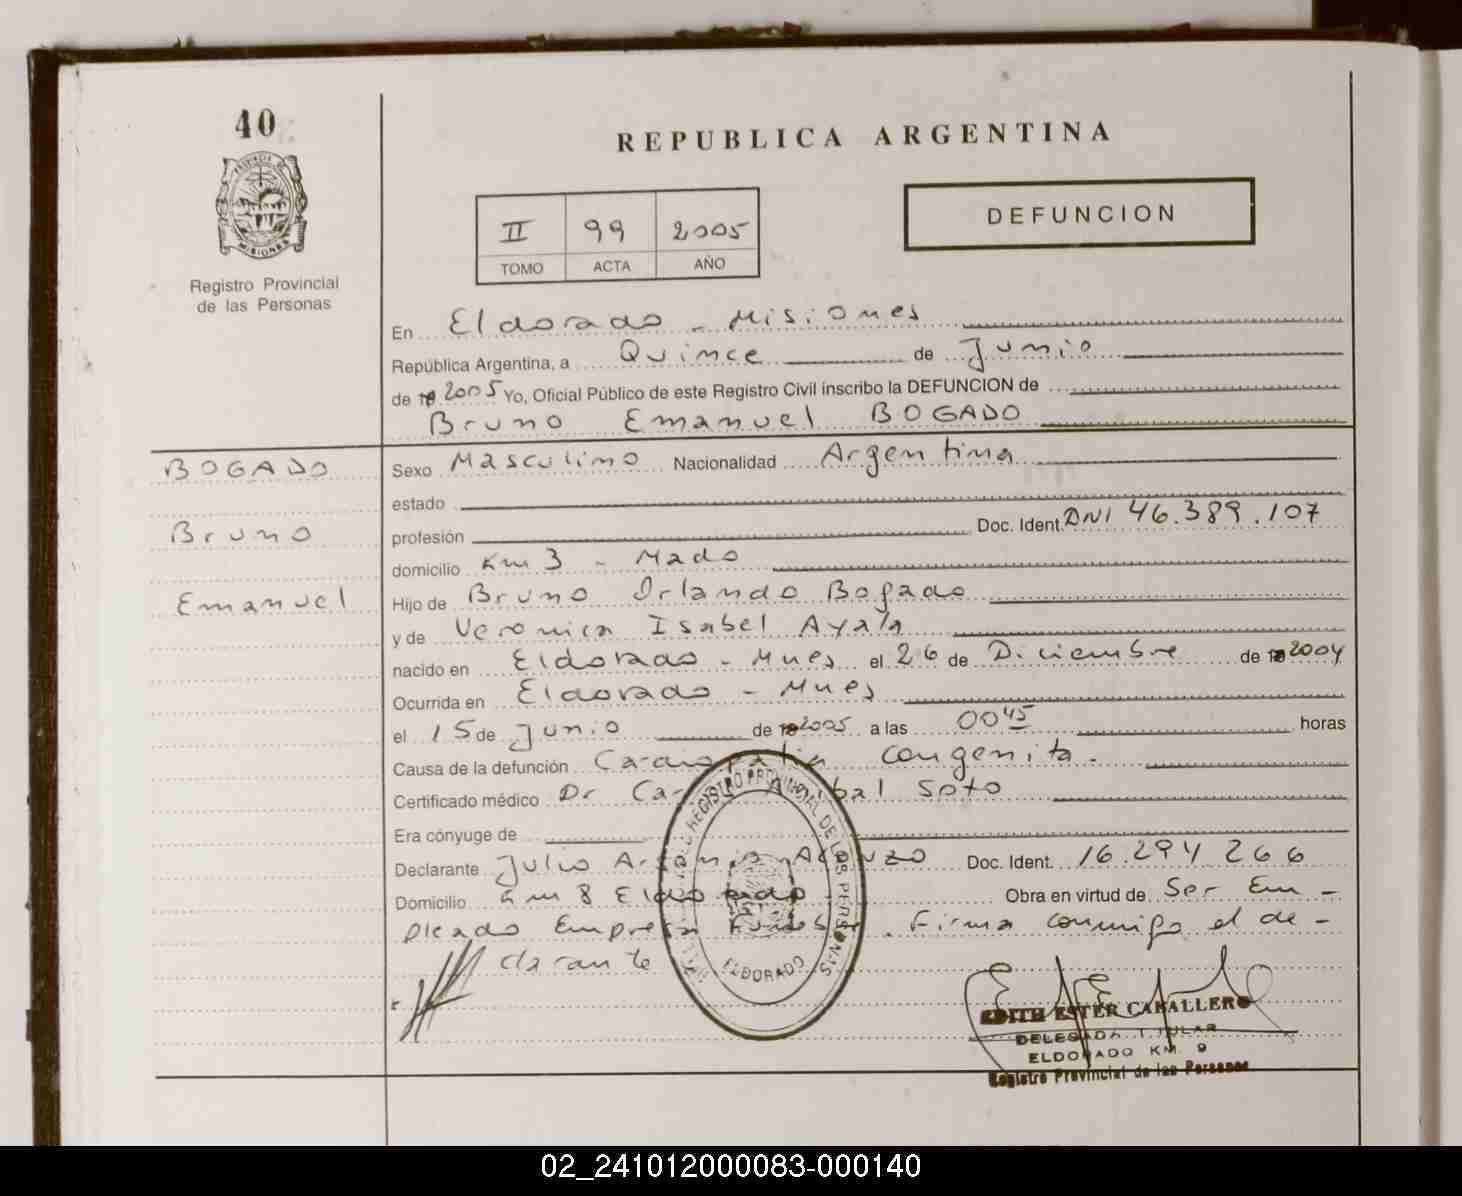 40
PROVINCIA DE
MISIONES
Registro Provincial
de las Personas
REPUBLICA ARGENTINA
II 99 2005
TOMO ACTA AÑO
DEFUNCION
En Eldorado - Misiones
República Argentina, a Quince de Junio
de 19 2005 Yo, Oficial Público de este Registro Civil inscribo la DEFUNCION de
Bruno Emanuel BOGADO
BOGADO
Bruno
Emanuel
Sexo Masculino Nacionalidad Argentina
estado
profesión Doc. Ident. DNI 46.389.107
domicilio Km 3 - Mado
Hijo de Bruno Orlando Bogado
y de Veronica Isabel Ayala
nacido en Eldorado - Mnes el 26 de Diciembre de 19 2004
Ocurrida en Eldorado - Mnes
el 15 de Junio de 19 2005 a las 00 45 horas
Causa de la defunción Cardiopatia congenita.
Certificado médico Dr Ca Anibal Soto
Era cónyuge de
Declarante Julio Doc. Ident. 16.294 266
Domicilio Km 8 Eldorado Obra en virtud de Ser Em-
pleado Empresa Funebre. Firma conmigo el de-
clarante
REGISTRO PROVINCIAL DE LAS PERSONAS
ELDORADO
EDITH ESTER CABALLERO
DELEGADA TITULAR
ELDORADO KM. 9
Registro Provincial de las Personas
02_241012000083-000140